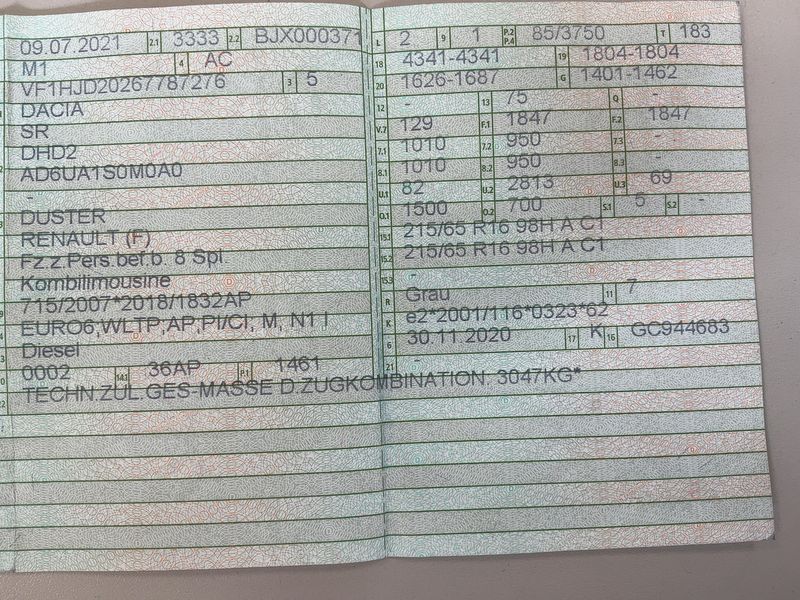 09.07.2021 2.1 3333 2.2 BJX000371
M1 4 AC
VF1HJD20267787276 3 5
DACIA
SR
DHD2
AD6UA1S0M0A0
-
DUSTER
RENAULT (F)
Fz.z.Pers.bef.b. 8 Spl.
Kombilimousine
715/2007*2018/1832AP
EURO6,WLTP,AP,PI/CI, M, N1 I
Diesel
0002 14.1 36AP P.1 1461
TECHN.ZUL.GES-MASSE D.ZUGKOMBINATION: 3047KG*
L 2 9 1 P.2 P.4 85/3750 T 183
18 4341-4341 19 1804-1804
20 1626-1687 G 1401-1462
12 - 13 75 Q -
V.7 129 F.1 1847 F.2 1847
7.1 1010 7.2 950 7.3 -
8.1 1010 8.2 950 8.3 -
U.1 82 U.2 2813 U.3 69
O.1 1500 O.2 700 S.1 5 S.2 -
15.1 215/65 R16 98H A C1
15.2 215/65 R16 98H A C1
15.3 -
R Grau 11 7
K e2*2001/116*0323*62
6 30.11.2020 17 K 16 GC944683
21 -